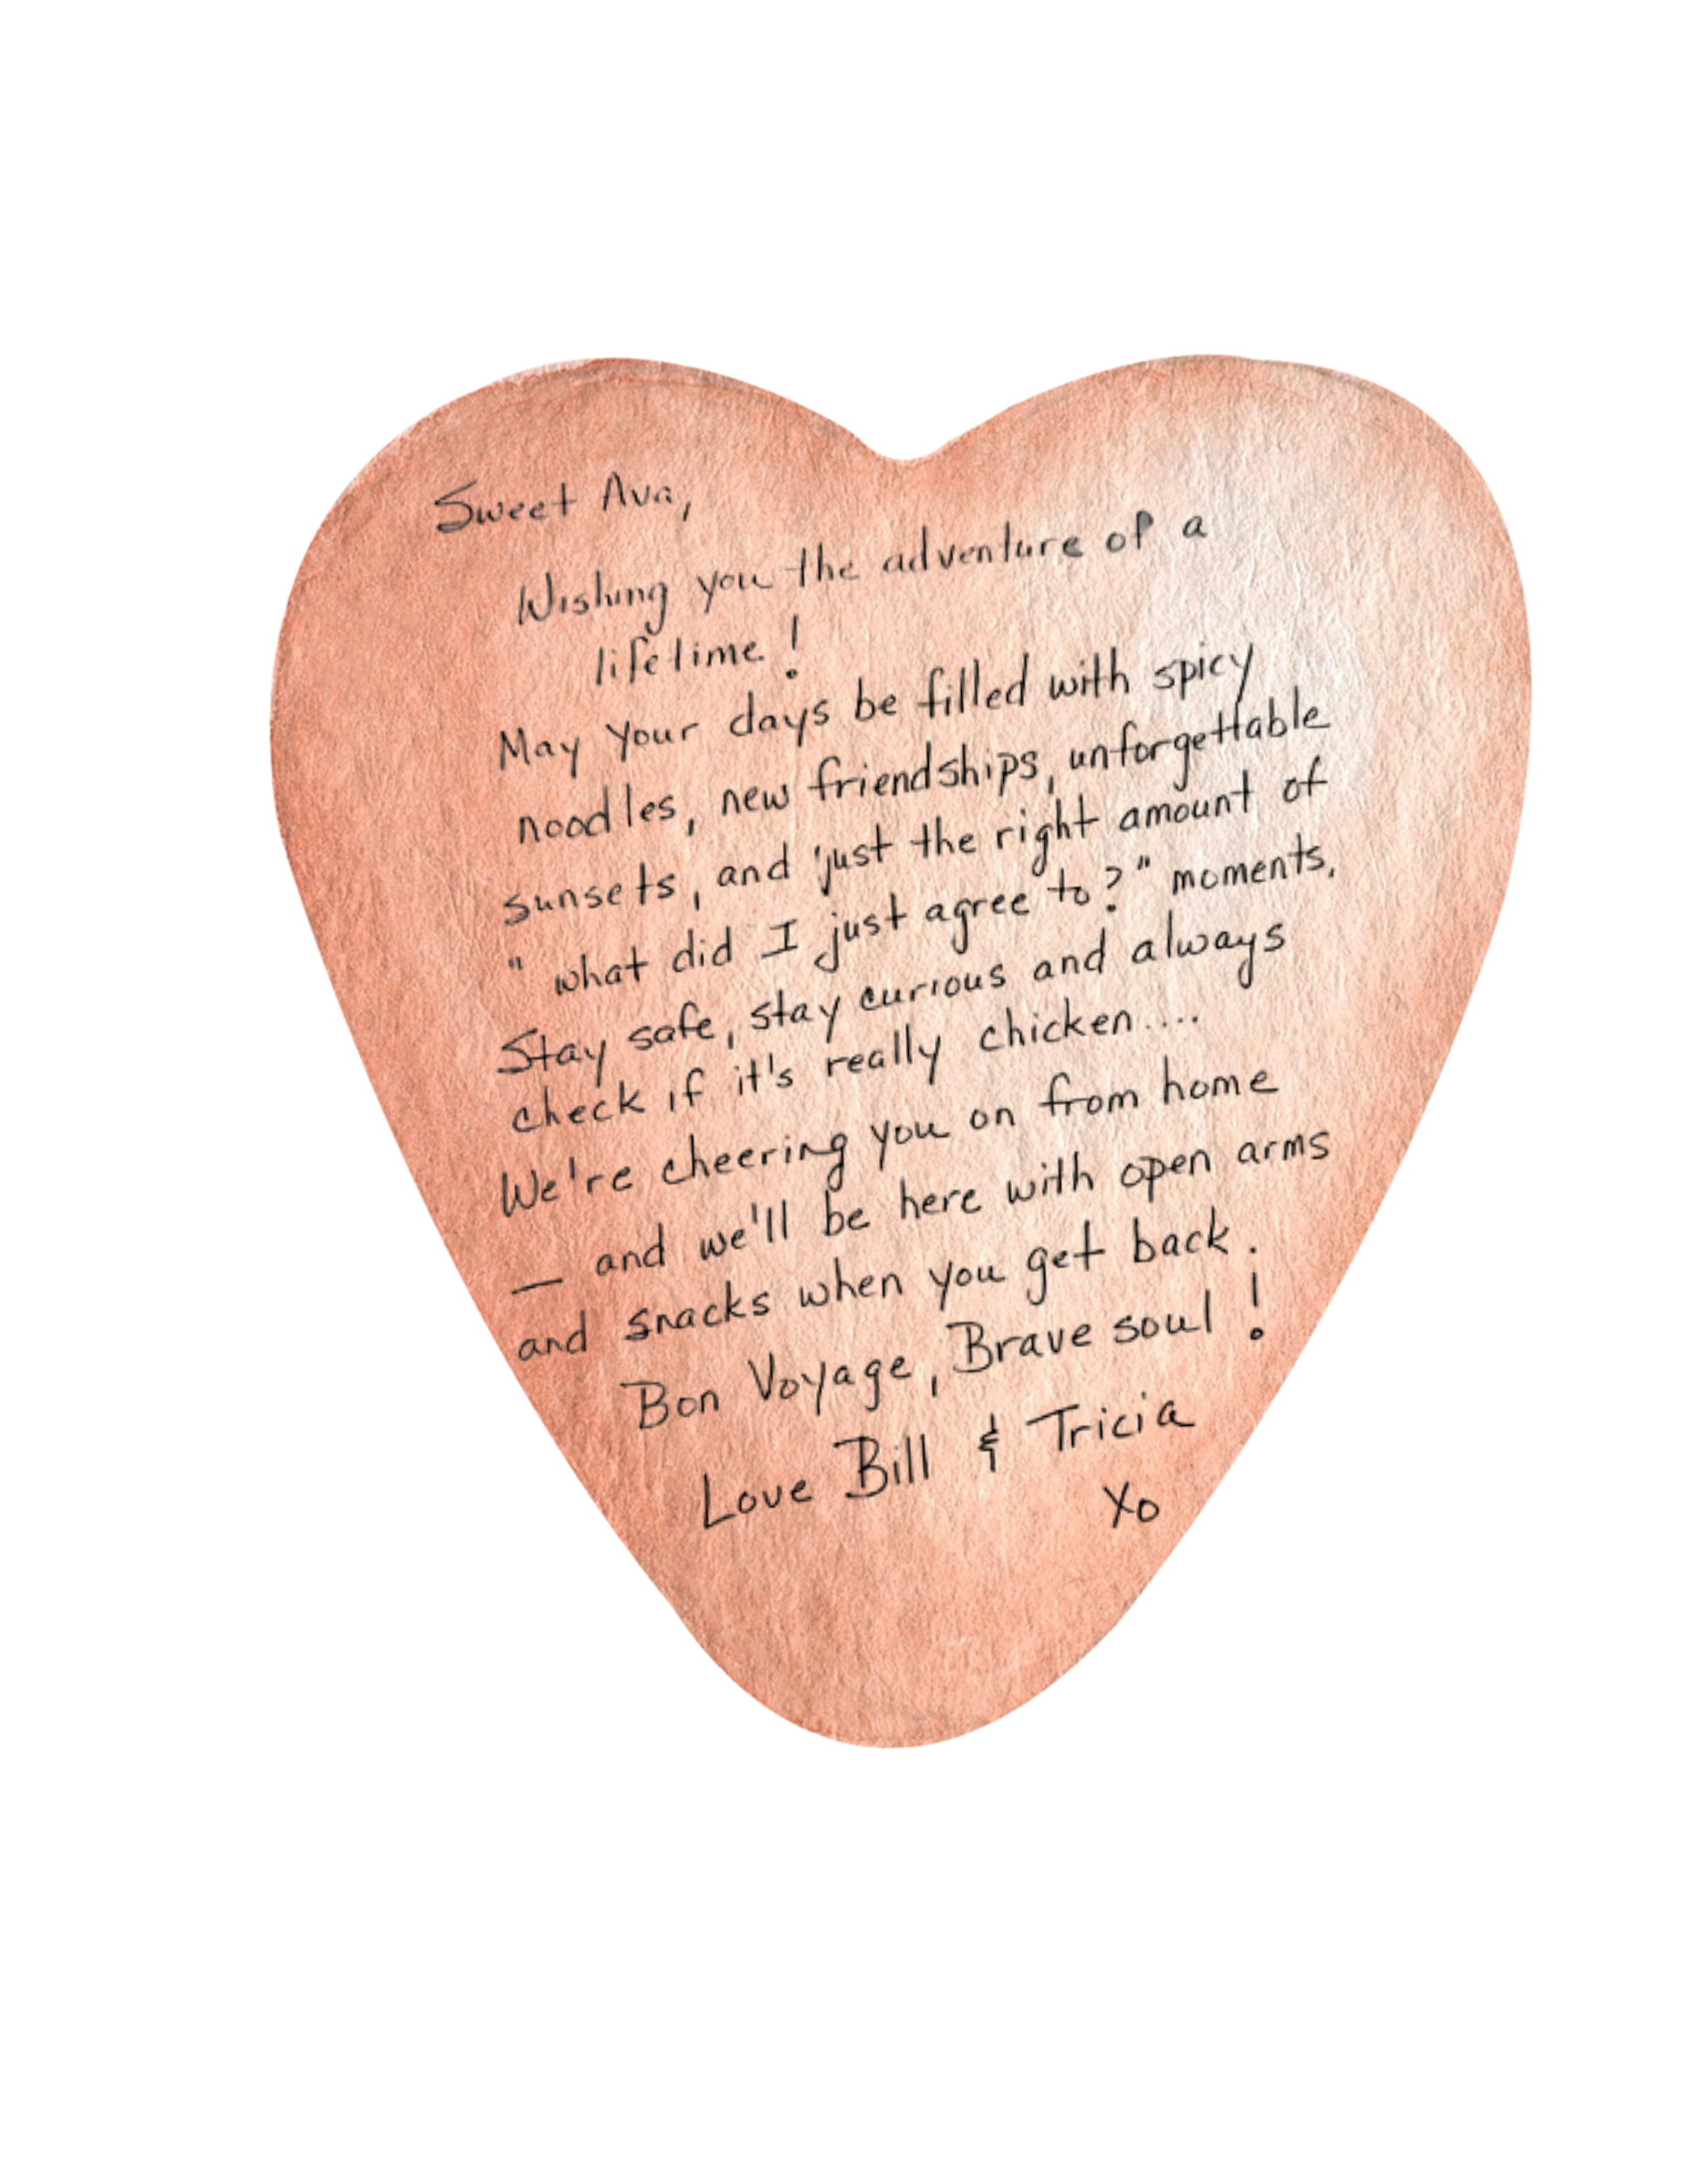 Sweet Ava,
Wishing you the adventure of a
lifetime!
May your days be filled with spicy
noodles, new friendships, unforgettable
sunsets, and just the right amount of
"what did I just agree to?" moments.
Stay safe, stay curious and always
check if it's really chicken....
We're cheering you on from home
— and we'll be here with open arms
and snacks when you get back.
Bon Voyage, Brave soul!
Love Bill & Tricia
Xo